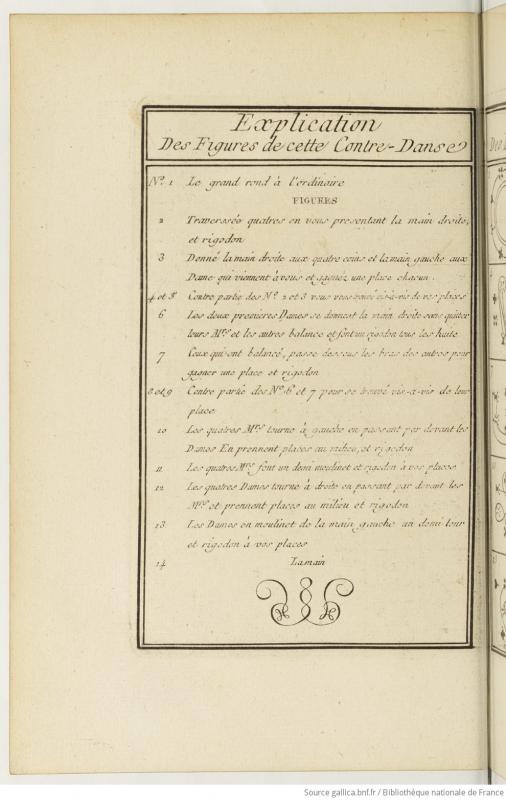 Explication
Des Figures de cette Contre-Danse
No. 1 Le grand rond à l'ordinaire
FIGURES
2 Traversséе quatres en vous presentant la main droite,
et rigodon
3 Donné la main droite aux quatre coins et la main gauche aux
Dame qui viennent à vous et gagnez une place chacun.
4 et 5 Contre partie des No. 2 et 3 vous vous vis-à-vis de vos places
6 Les deux premieres Dames se donnent la main droite sans quitter
leurs Mrs et les autres balance et font un rigodon tous les huite
7 Ceux qui ont balancé, passe dessous les bras des autres pour
gagner une place et rigodon
8 et 9 Contre partie des No. 6 et 7 pour se trouvé vis-a-vis de leur
place
10 Les quatres Mrs tourne à gauche en passant par devant les
Dames En prennent places au milieu, et rigodon
11 Les quatres Mrs font un demi moulinet et rigodon à vos places
12 Les quatres Dames tourne à droite en passant par devant les
Mrs et prennent places au milieu et rigodon
13 Les Dames en moulinet de la main gauche un demi tour
et rigodon à vos places
14 La main
Des
Source gallica.bnf.fr / Bibliothèque nationale de France